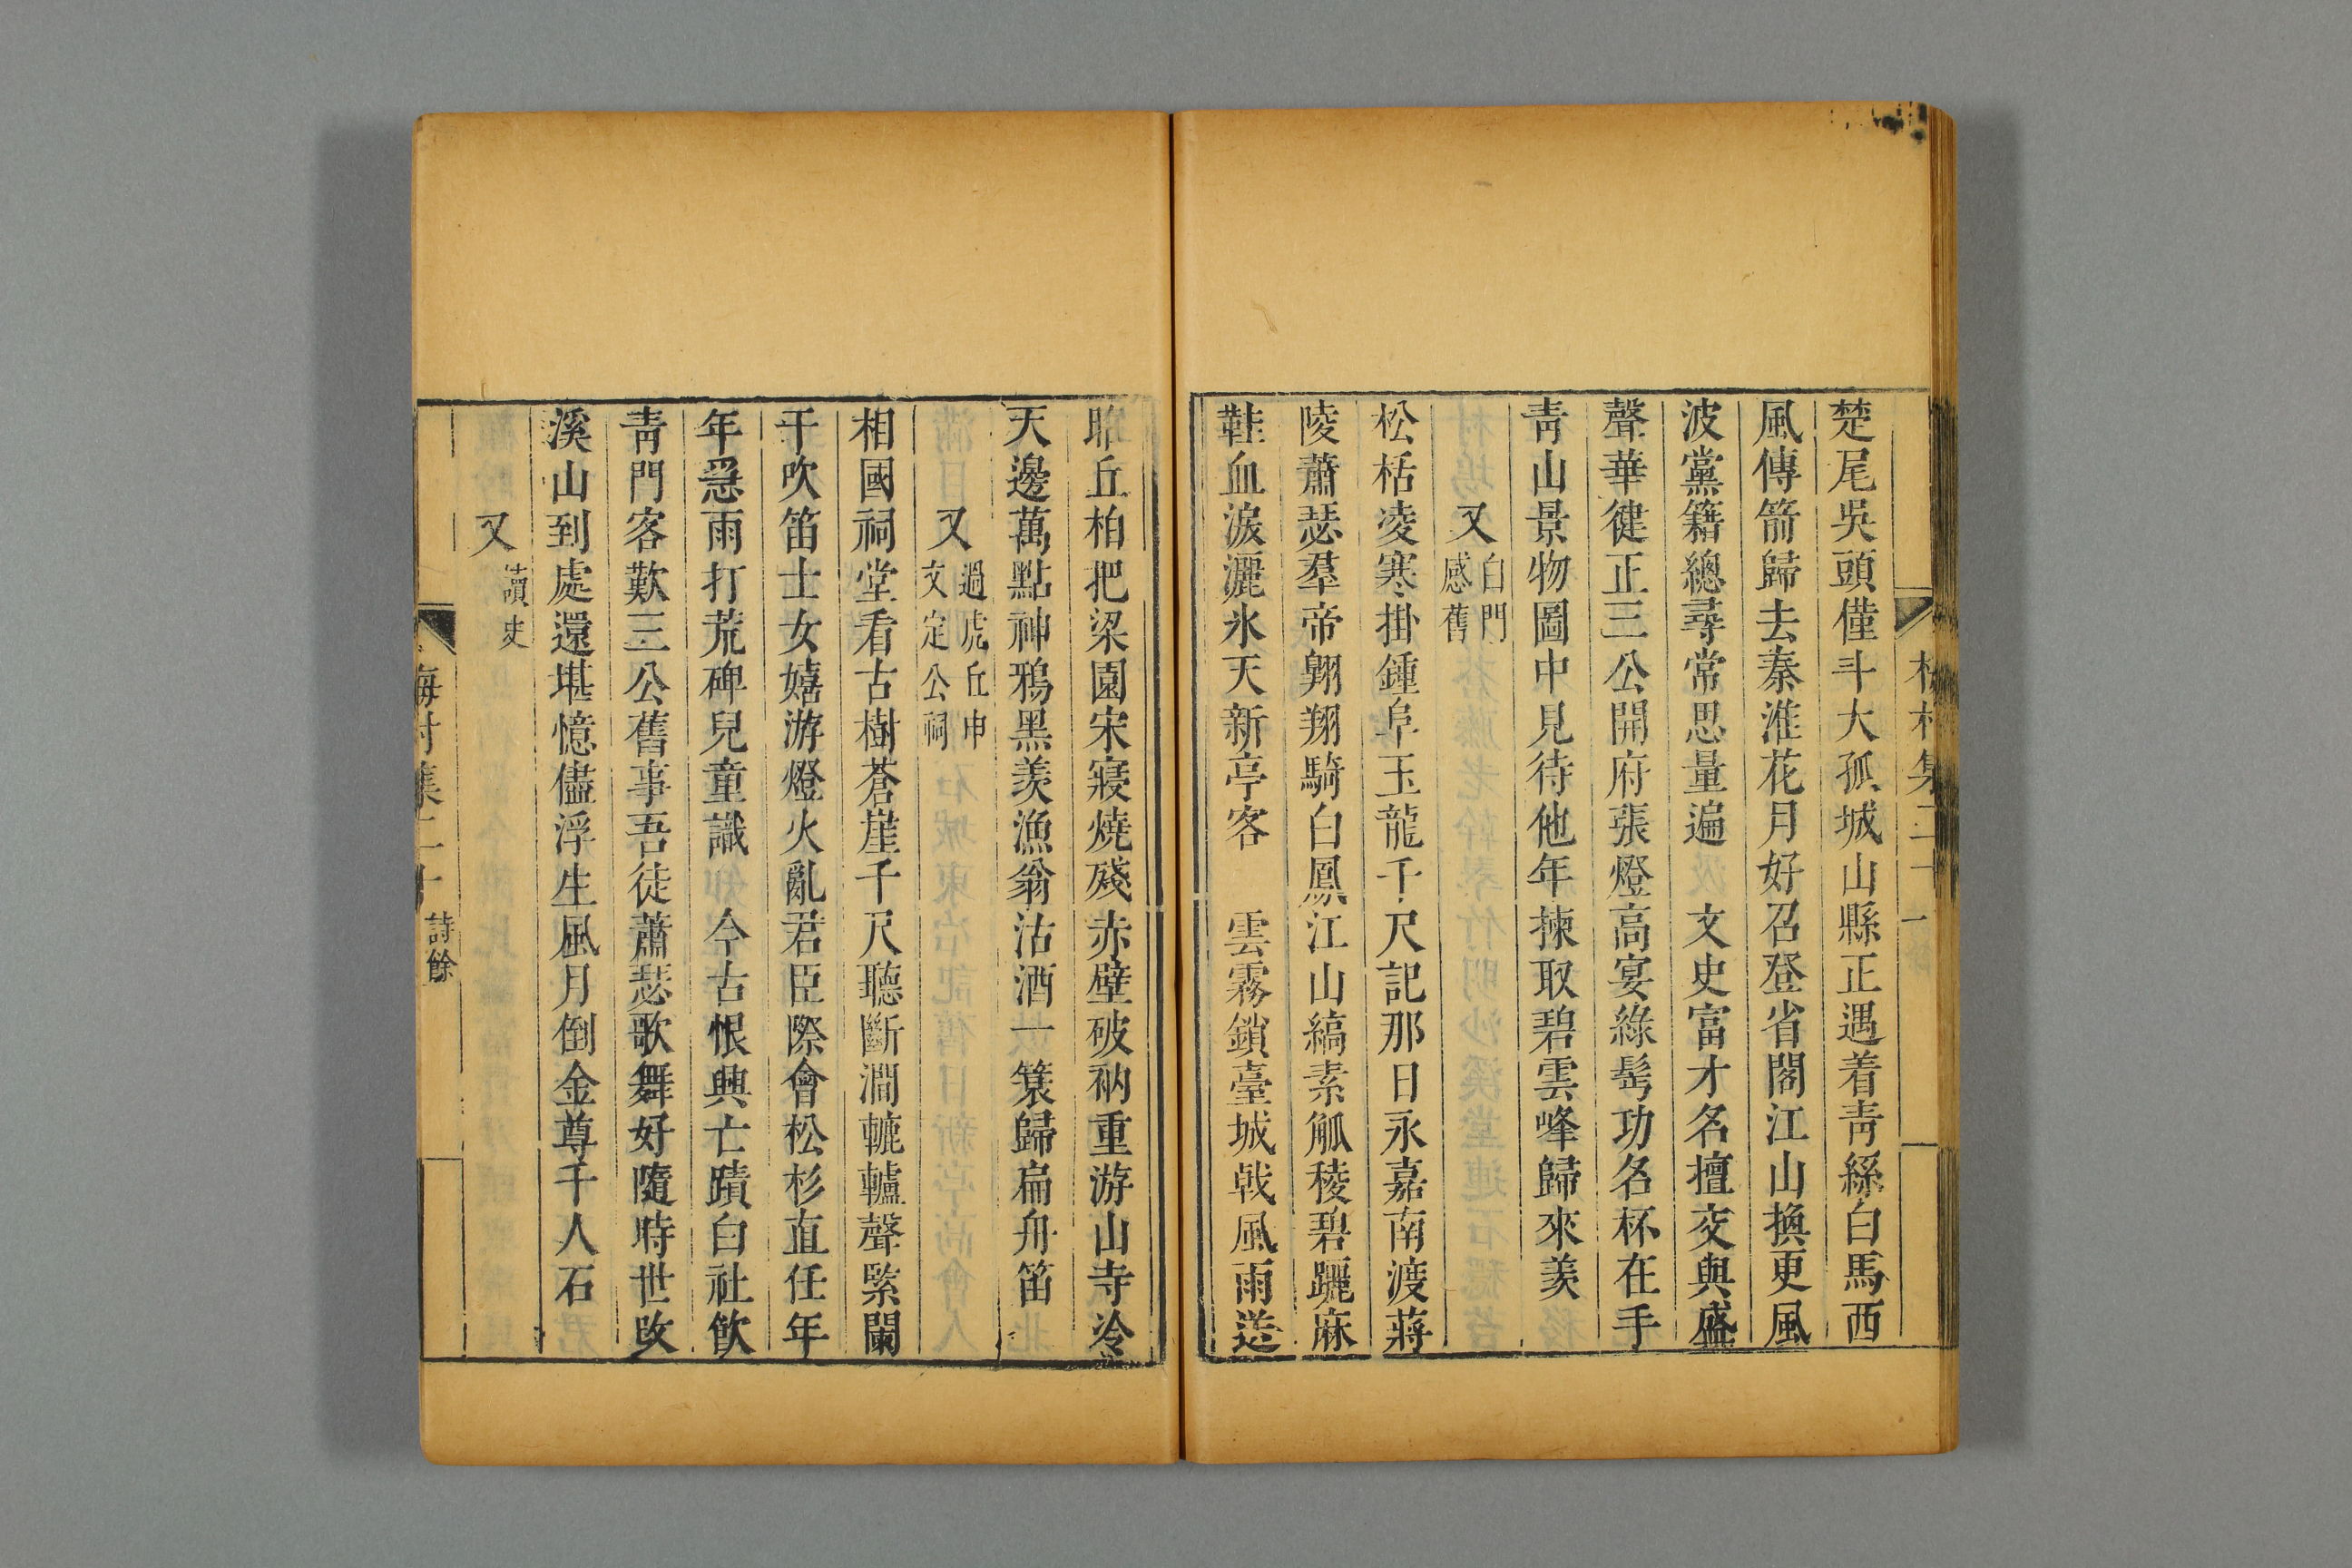 楚尾吳頭僅斗大孤城山縣正遇着靑絲白馬西
風傳箭歸去秦淮花月好召登省閣江山換更風
波黨籍總尋常思量遍 文史富才名擅交與盛
聲華健正三公開府張燈高宴綠髩功名杯在手
靑山景物圖中見待他年揀取碧雲峰歸來羨
又 白門感舊
松栝凌寒掛鍾阜玉龍千尺記那日永嘉南渡蔣
陵蕭瑟羣帝翺翔騎白鳳江山縞素觚稜碧躧麻
鞋血淚灑氷天新亭客 雲霧鎖臺城戟風雨送
昭丘柏把梁園宋寢燒殘赤壁破衲重游山寺冷
天邊萬點神鴉黑羡漁翁沽酒一簑歸扁舟笛
又 過虎丘申文定公祠
相國祠堂看古樹蒼崖千尺聽斷澗轆轤聲緊闌
干吹笛士女嬉游燈火亂君臣際會松杉直任年
年急雨打荒碑兒童識 今古恨興亡蹟白社飮
靑門客歎三公舊事吾徒蕭瑟歌舞好隨時世改
溪山到處還堪憶儘浮生風月倒金尊千人石
又 讀史
梅村集二十 詩餘